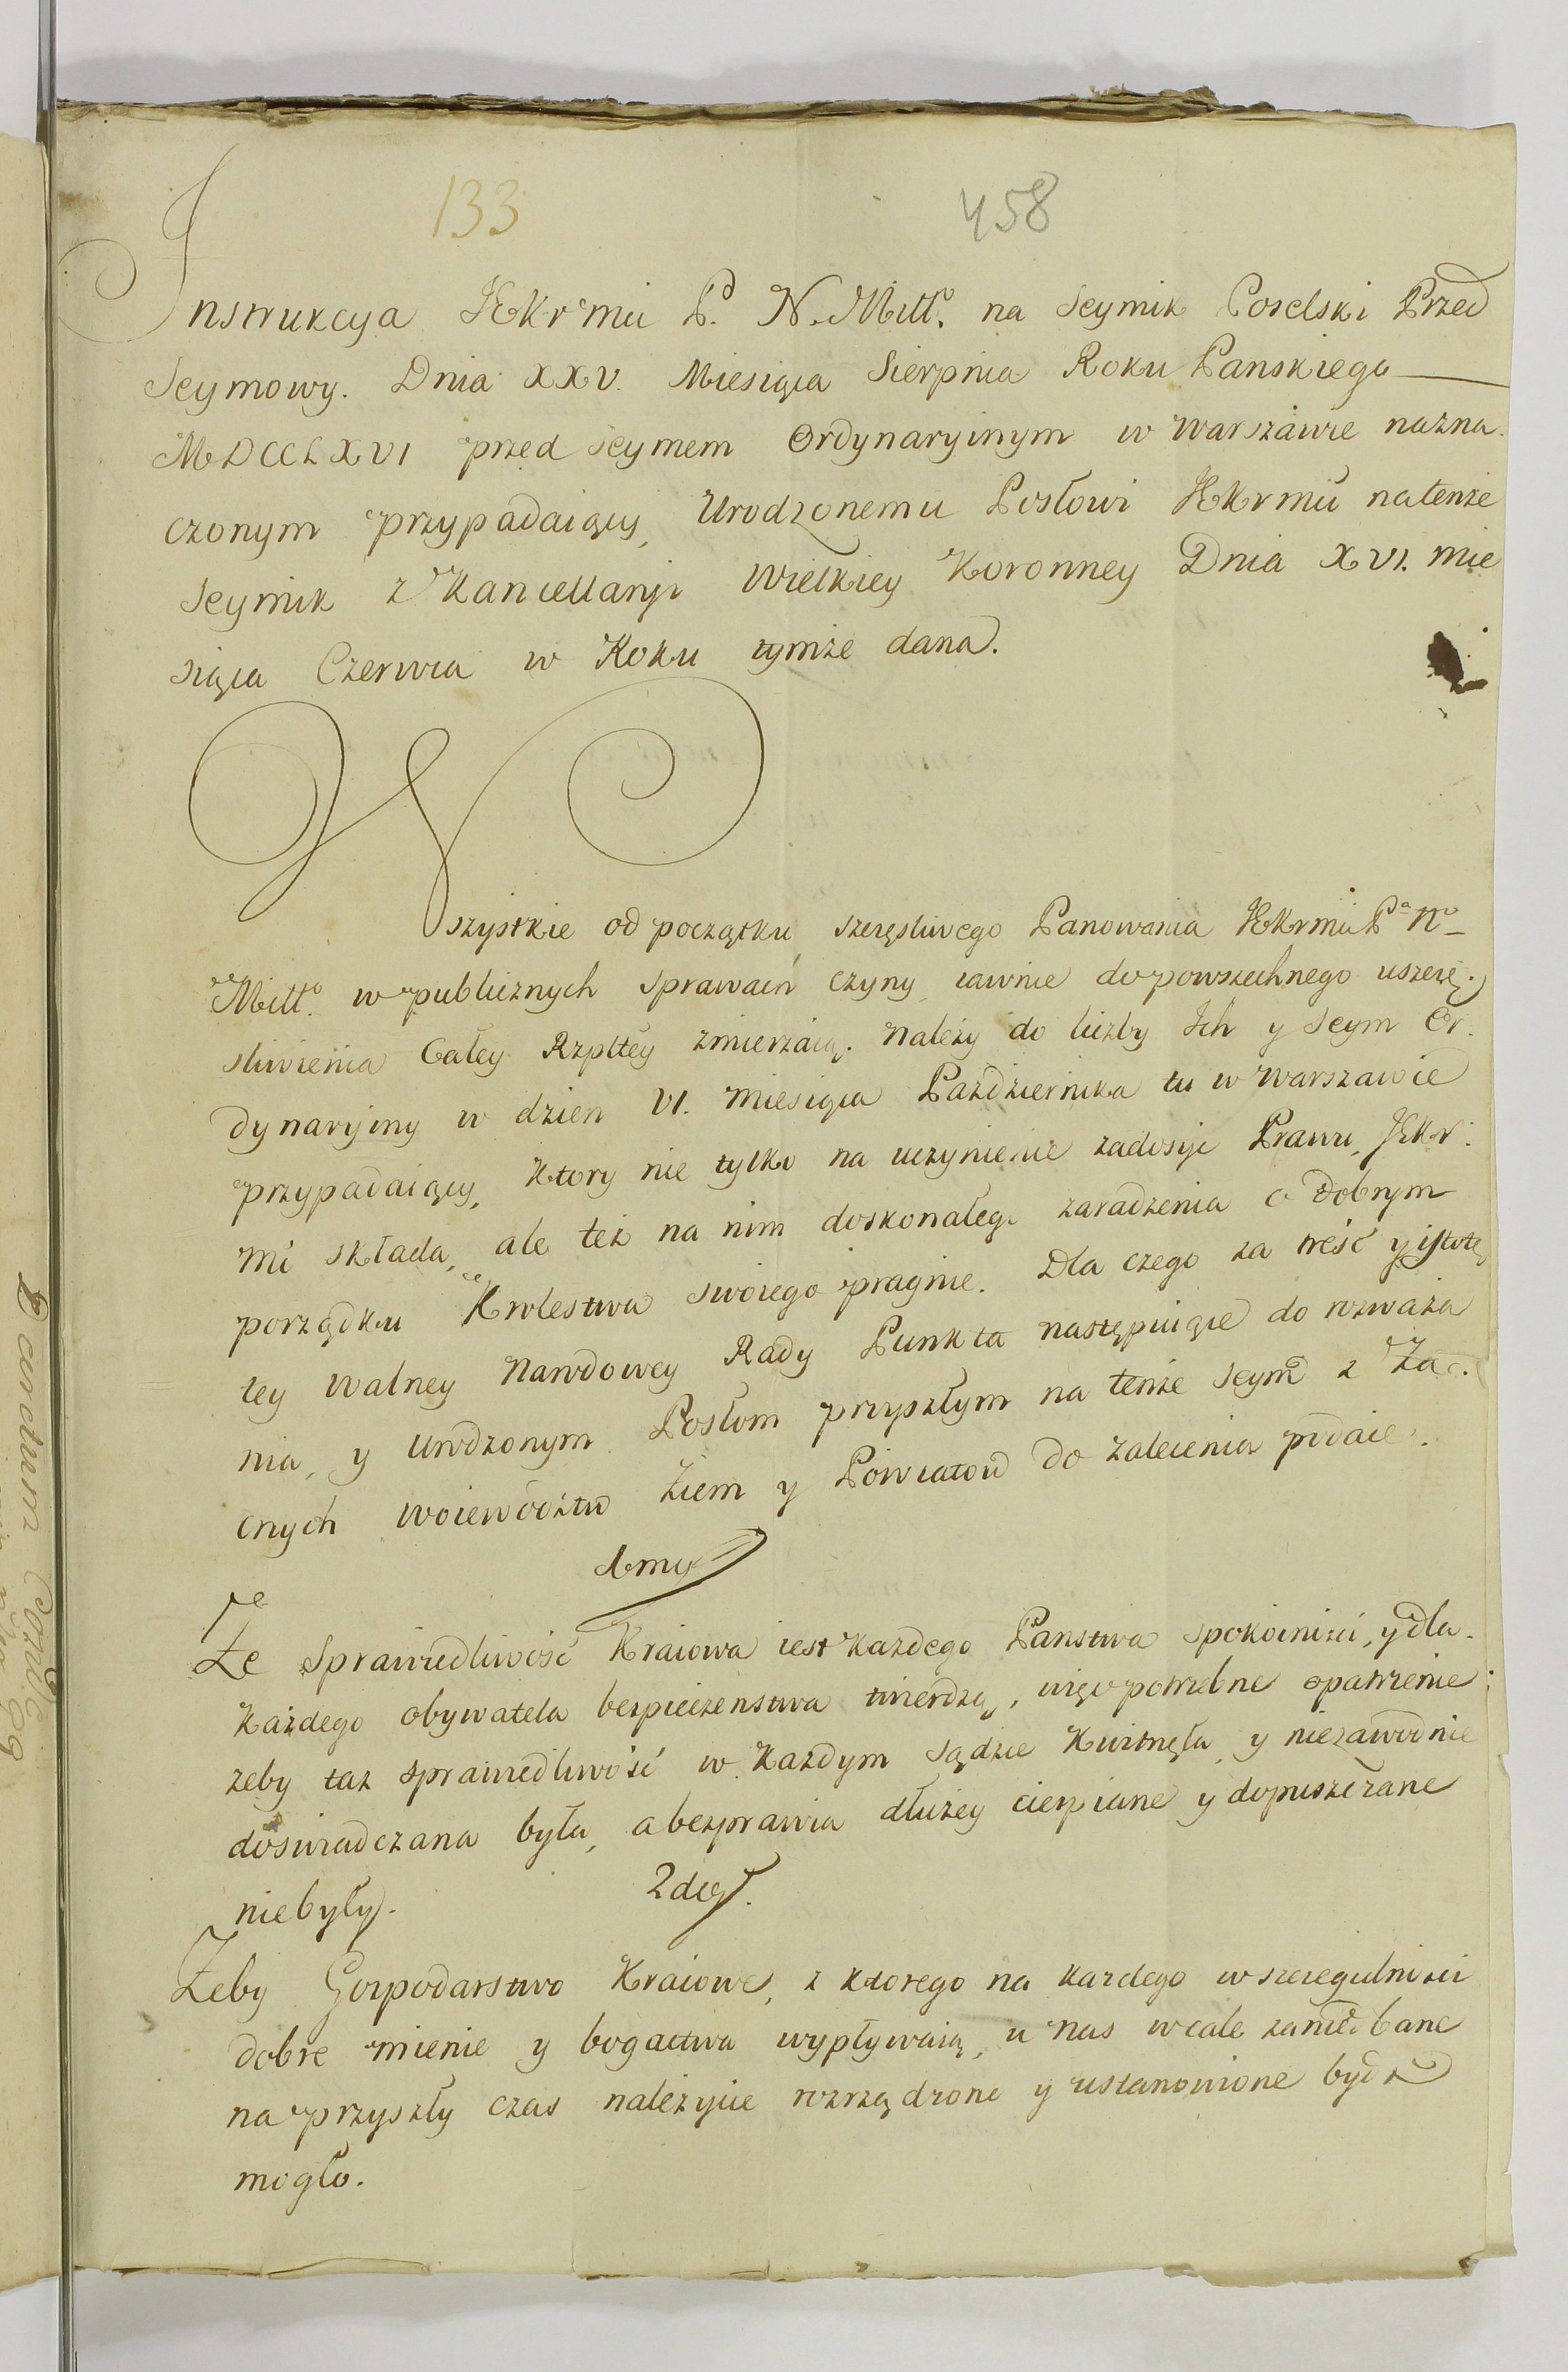 133 458
Instrukcya JKrmci P. N. Mill̃º. na Seymik Poselski Przed
Seymowy. Dnia XXV. Miesiąca Sierpnia Roku Panskiego
MDCCLXVI przed Seymem Ordynaryinym w Warszawie nazna.
czonym przypadaiący, Urodzonemu Posłowi JKrmci na tenże
Seymik z Kancellaryi Wielkiey Koronney Dnia XVI. mie
siąca Czerwca w Roku tymże dana.
Wszystkie od początku szczęsliwego Panowania JKrmci Pª Nº
Millº. w publicznych sprawach czyny iawnie do powszechnego uszczę.
sliwienia Całey Rzpltey zmierzaią. Należy do liczby Ich y Seym Or.
dynaryiny w dzien VI. Miesiąca Pazdziernika tu w Warszawie
przypadaiący, ktory nie tylko na uczynienie zadosyć Prawu, JKr.
mć składa, ale też na nim doskonałego zaradzenia o dobrym
porządku Krolestwa swoiego pragnie. Dla czego za tresć y istotę
tey walney Narodowey Rady Punkta następuiące do rozważa
nia, y Urodzonym Posłom przyszłym na tenże Seym z Za.
cnych Woiewodztw Ziem y Powiatow do zalecenia podaie.
1mo
Że Sprawiedliwość Kraiowa iest każdego Panstwa spokoiności, y dla.
każdego obywatela bezpieczenstwa twierdzą, więc potrzebne opatrzenie
żeby taż sprawiedliwość w każdym sądzie kwitnęła, y niezawodnie
doswiadczana była, a bezprawia dłużey cierpiane y dopuszczane
niebyły.
2do.
Żeby Gospodarstwo Kraiowe, z ktorego na każdego w szczegulności
dobre mienie y bogactwa wypływaią, u nas wcale zaniedbane
na przyszły czas należycie rozrządzone y ustanowione bydź
mogło.